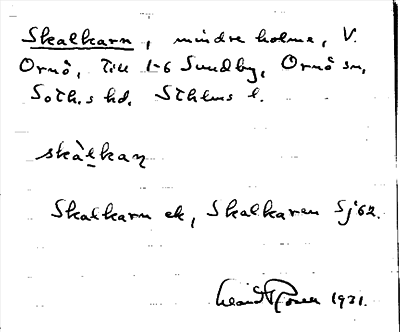 Skalkarn, mindre holme, V.
Ornö, till 1-6 Sundby, Ornö sn,
Soth.s hd. Sthlms l.
skàlkaṇ
Skalkarn ek, Skalkaren Sj 62.
1931.